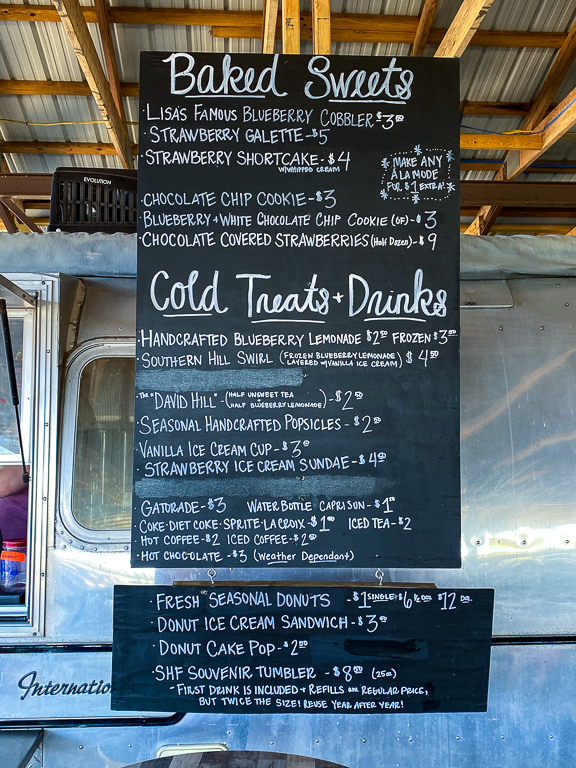 EVOLUTION
Baked Sweets
· LISA'S FAMOUS BLUEBERRY COBBLER $3⁰⁰
· STRAWBERRY GALETTE - $5
· STRAWBERRY SHORTCAKE - $4
W/WHIPPED CREAM
MAKE ANY
À LA MODE
FOR $1 EXTRA!
· CHOCOLATE CHIP COOKIE - $3
· BLUEBERRY + WHITE CHOCOLATE CHIP COOKIE (GF) - $3
· CHOCOLATE COVERED STRAWBERRIES (Half Dozen) - $9
Cold Treats + Drinks
· HANDCRAFTED BLUEBERRY LEMONADE $2⁵⁰ FROZEN $3⁵⁰
· SOUTHERN HILL SWIRL (FROZEN BLUEBERRY LEMONADE LAYERED W/VANILLA ICE CREAM) $4⁵⁰
· THE "DAVID HILL" - (HALF UNSWEET TEA HALF BLUEBERRY LEMONADE) - $2⁵⁰
· SEASONAL HANDCRAFTED POPSICLES - $2⁵⁰
· VANILLA ICE CREAM CUP - $3⁰⁰
· STRAWBERRY ICE CREAM SUNDAE - $4⁵⁰
· GATORADE - $3 WATER BOTTLE · CAPRI SUN - $1⁰⁰
· COKE · DIET COKE · SPRITE · LA CROIX - $1⁵⁰ ICED TEA - $2
· HOT COFFEE - $2 ICED COFFEE - $2⁵⁰
· HOT CHOCOLATE - $3 (Weather Dependant)
· FRESH SEASONAL DONUTS - $1 SINGLE · $6 ½ DOZ. $12 DOZ.
· DONUT ICE CREAM SANDWICH - $3⁵⁰
· DONUT CAKE POP - $2⁵⁰
· SHF SOUVENIR TUMBLER - $8⁰⁰ (25oz)
- FIRST DRINK IS INCLUDED + REFILLS ARE REGULAR PRICE,
BUT TWICE THE SIZE! REUSE YEAR AFTER YEAR!